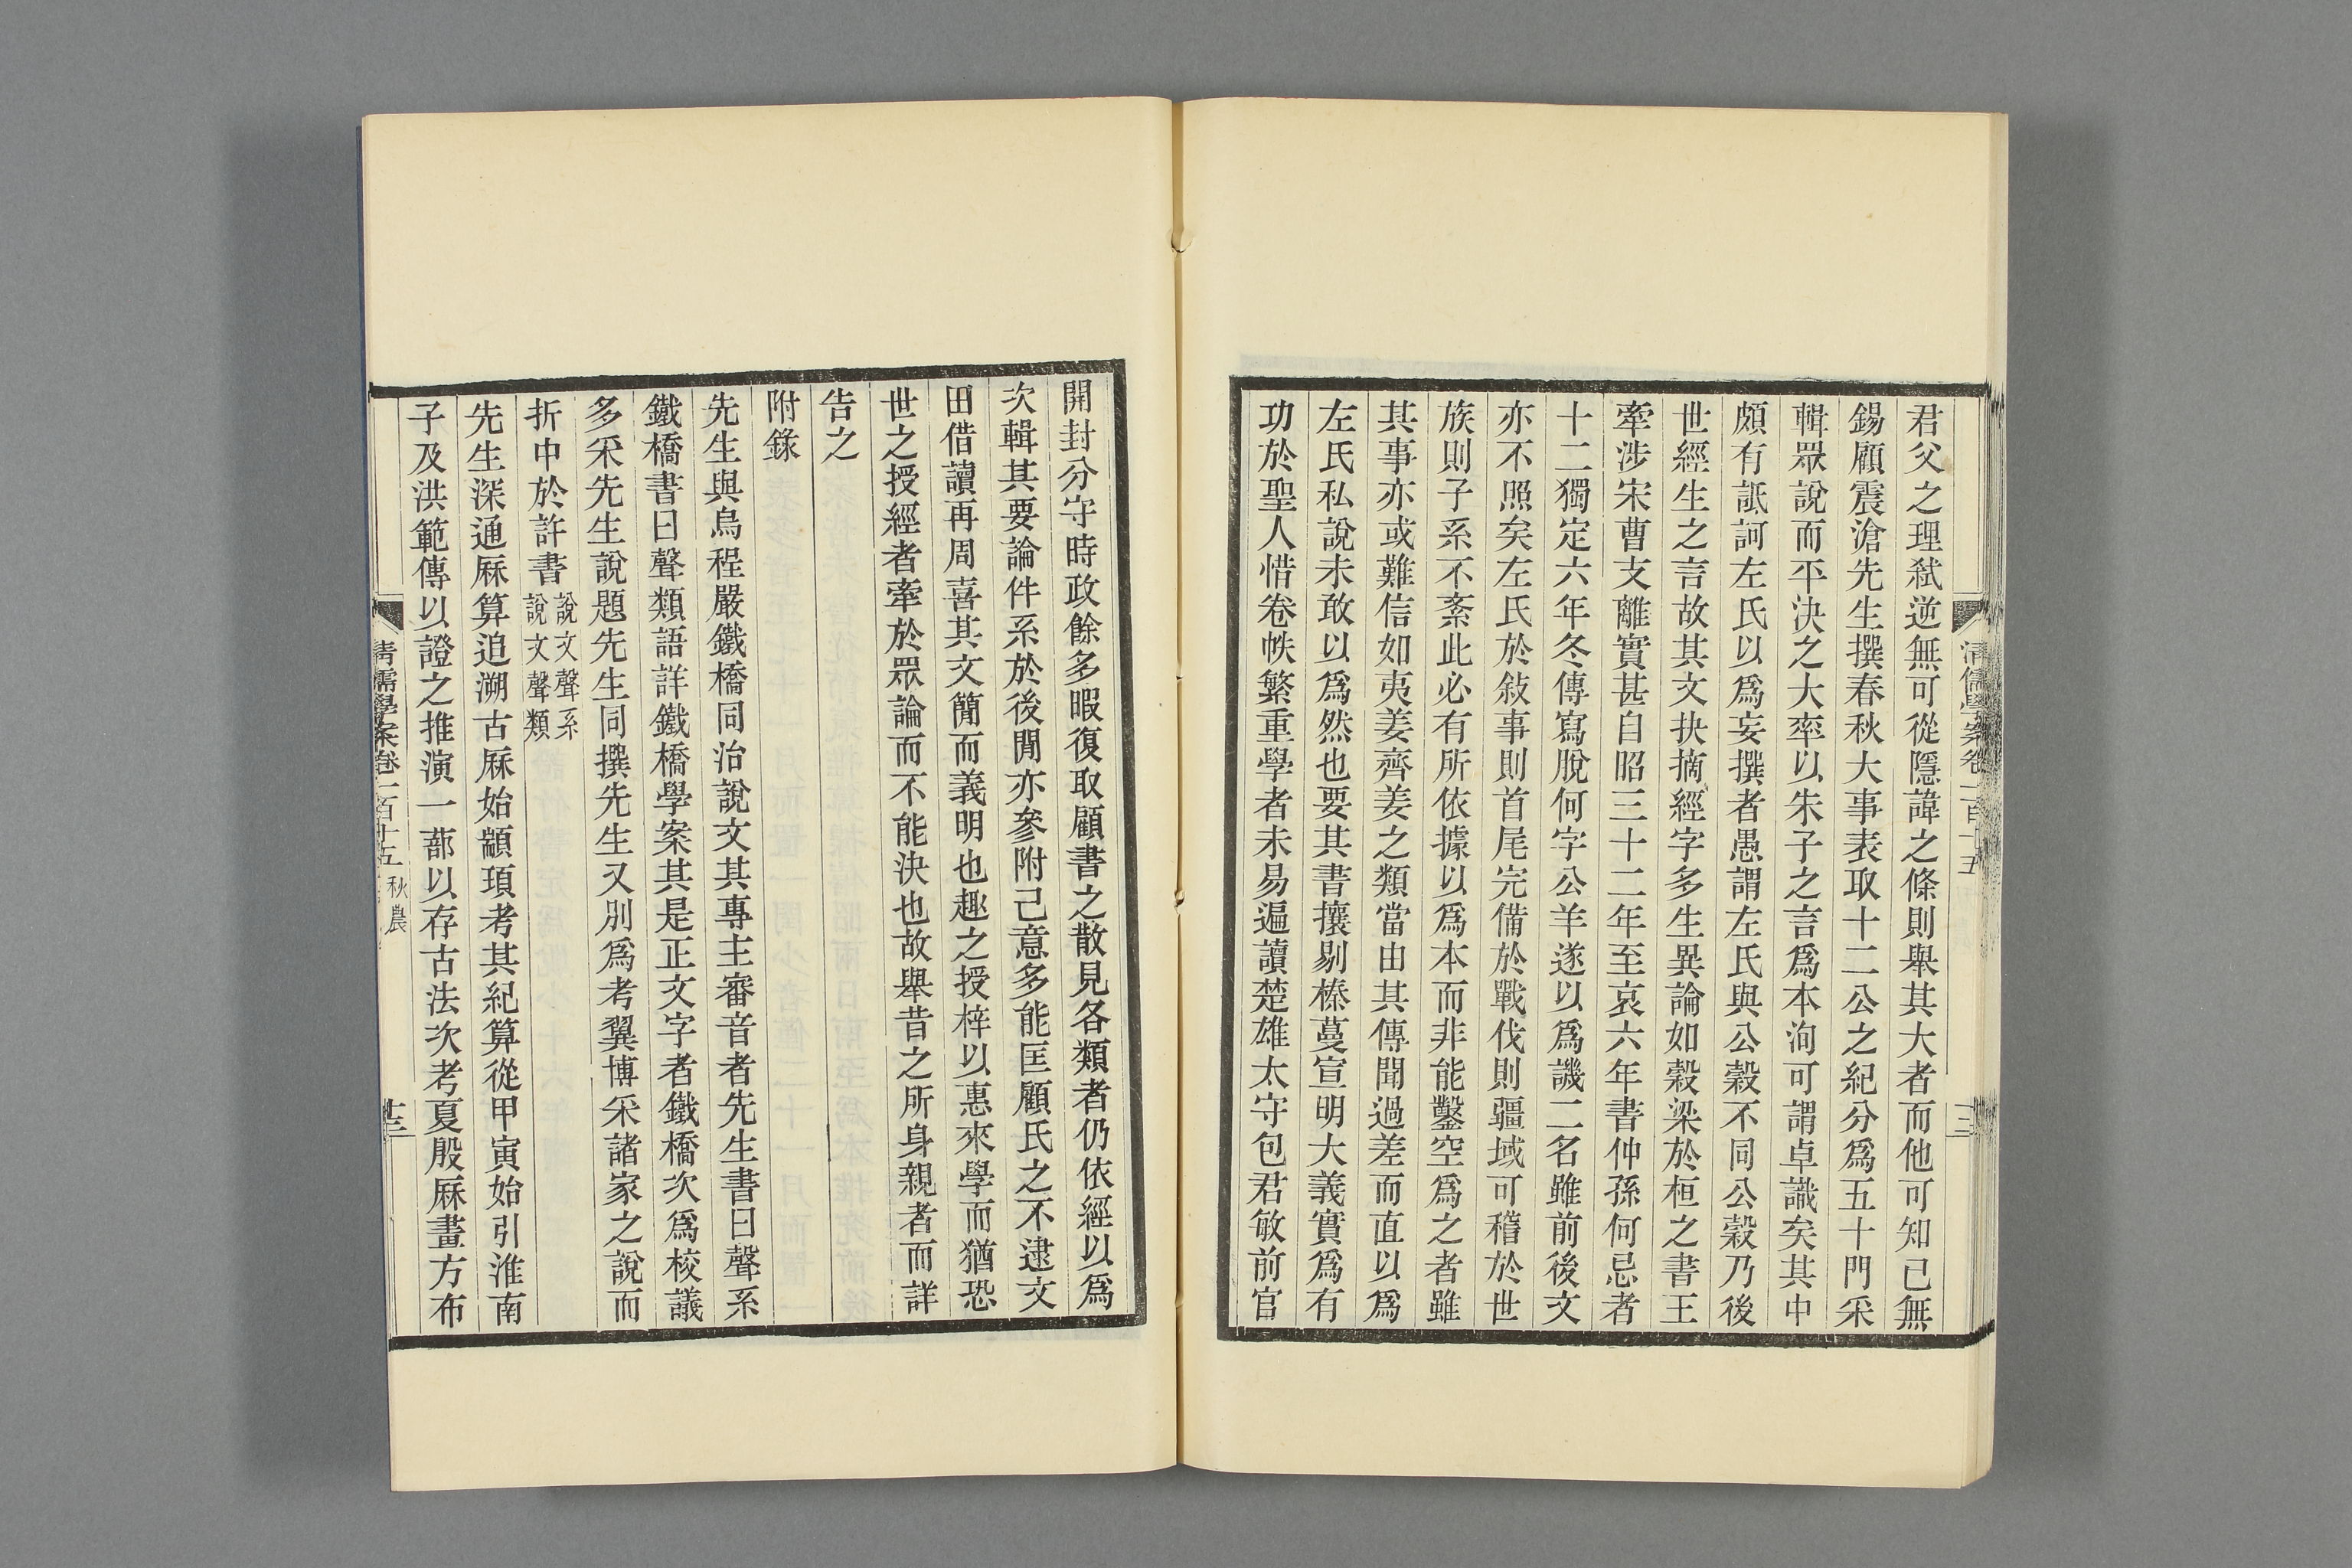 君父之理弑逆無可從隱諱之條則舉其大者而他可知已無
錫顧震滄先生撰春秋大事表取十二公之紀分爲五十門采
輯眾說而平決之大率以朱子之言爲本洵可謂卓識矣其中
頗有詆訶左氏以爲妄撰者愚謂左氏與公穀不同公穀乃後
世經生之言故其文抉摘經字多生異論如穀梁於桓之書王
牽涉宋曹支離實甚自昭三十二年至哀六年書仲孫何忌者
十二獨定六年冬傳寫脫何字公羊遂以爲譏二名雖前後文
亦不照矣左氏於敍事則首尾完備於戰伐則疆域可稽於世
族則子系不紊此必有所依據以爲本而非能鑿空爲之者雖
其事亦或難信如夷姜齊姜之類當由其傳聞過差而直以爲
左氏私說未敢以爲然也要其書攘剔榛蔓宣明大義實爲有
功於聖人惜卷帙繁重學者未易遍讀楚雄太守包君敏前官
清儒學案卷一百十五
開封分守時政餘多暇復取顧書之散見各類者仍依經以爲
次輯其要論件系於後閒亦參附己意多能匡顧氏之不逮文
田借讀再周喜其文簡而義明也趣之授梓以惠來學而猶恐
世之授經者牽於眾論而不能決也故舉昔之所身親者而詳
告之
附錄
先生與烏程嚴鐵橋同治說文其專主審音者先生書曰聲系
鐵橋書曰聲類語詳鐵橋學案其是正文字者鐵橋次爲校議
多采先生說題先生同撰先生又別爲考翼博采諸家之說而
折中於許書說文聲系說文聲類
先生深通厤算追溯古厤始顓頊考其紀算從甲寅始引淮南
子及洪範傳以證之推演一蔀以存古法次考夏殷厤畫方布
清儒學案卷一百十五 秋農
十三